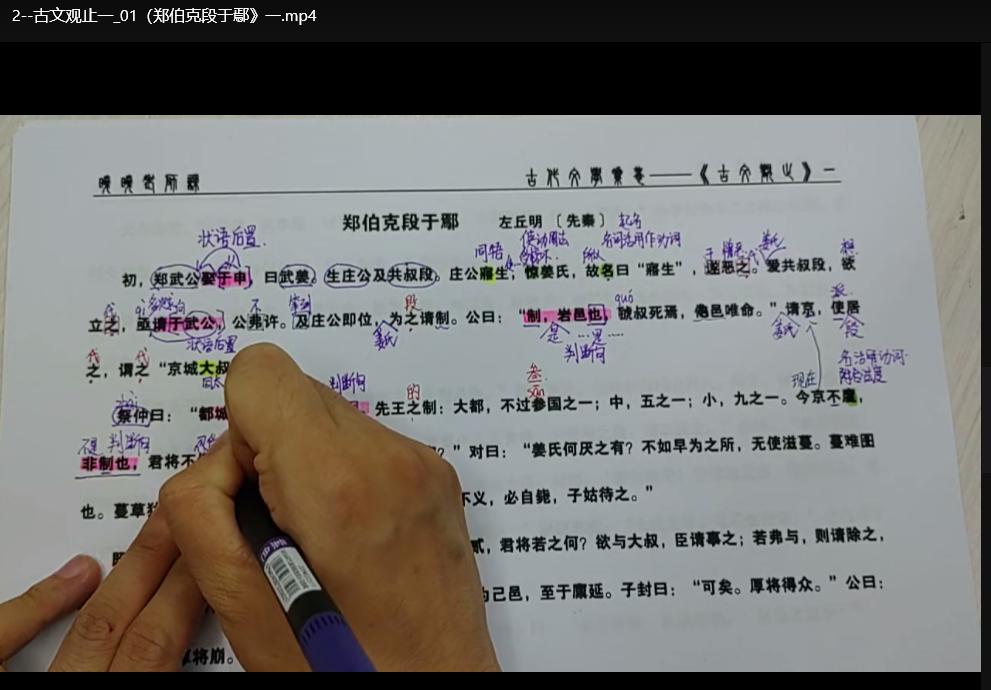 2--古文观止一_01（郑伯克段于鄢》一.mp4
晚晚老师课
古代文学常考——《古文观止》一
郑伯克段于鄢 左丘明 〔先秦〕 起名
状语后置. 同牾 使动用法 名词活用作动词
初，郑武公娶于申，曰武姜。生庄公及共叔段。庄公寤生，惊姜氏，故名曰“寤生”，遂恶之。爱共叔段，欲
代 不 等到 段 guó
立之，亟请于武公，公弗许。及庄公即位，为之请制。公曰：“制，岩邑也，虢叔死焉，佗邑唯命。”请京，使居
状语后置 姜氏 是 判断句 姜氏 段
代 代 名活用动词
之，谓之“京城大叔
判断句 的 叁 sān 现在
祭仲曰：“都城 先王之制：大都，不过参国之一；中，五之一；小，九之一。今京不度，
不是 判断句
非制也，君将不 ？”对曰：“姜氏何厌之有？不如早为之所，无使滋蔓。蔓难图
也。蔓草 不义，必自毙，子姑待之。”
贰，君将若之何？欲与大叔，臣请事之；若弗与，则请除之，
为己邑，至于廪延。子封曰：“可矣。厚将得众。”公曰：
将崩。